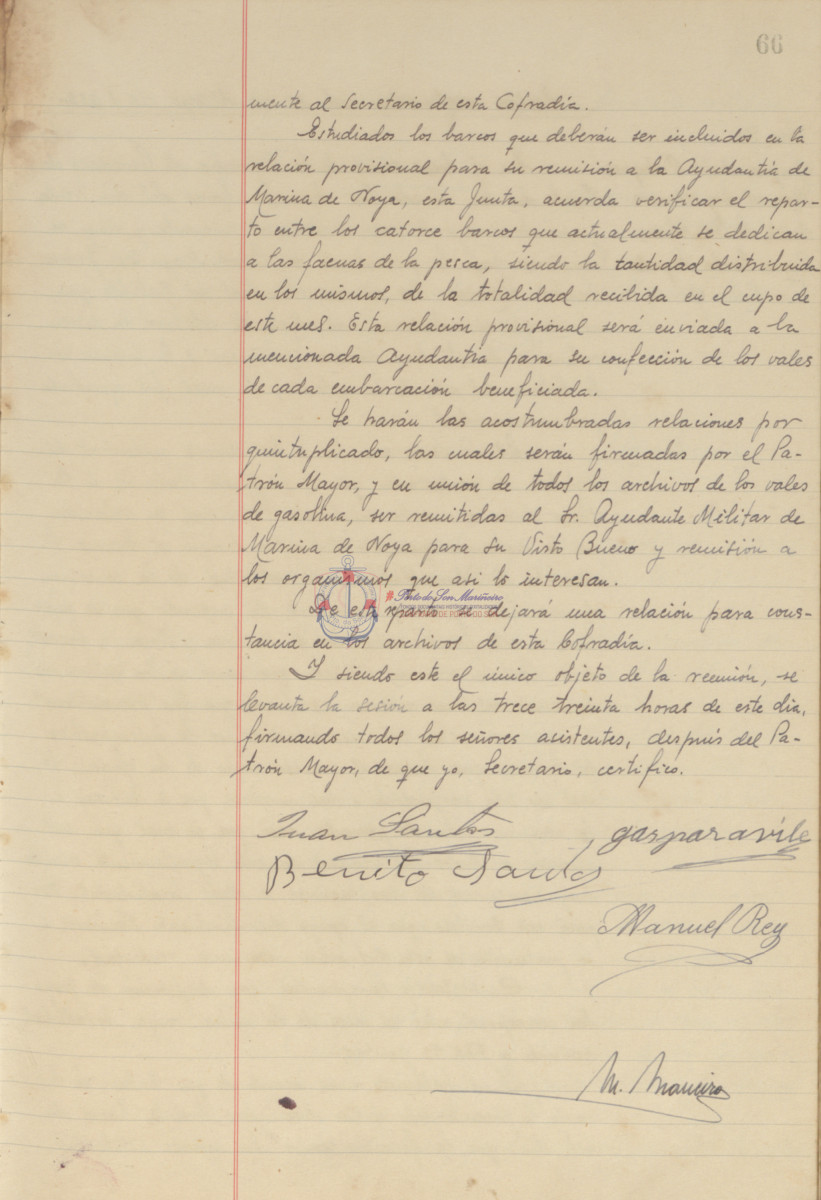 66
mente al Secretario de esta Cofradía.
Estudiados los barcos que deberán ser incluidos en la
relación provisional para su remisión a la Ayudantía de
Marina de Noya, esta Junta, acuerda verificar el repar-
to entre los catorce barcos que actualmente se dedican
a las faenas de la pesca, siendo la cantidad distribuida
en los mismos, de la totalidad recibida en el cupo de
este mes. Esta relación provisional será enviada a la
mencionada Ayudantía para su confección de los vales
de cada embarcación beneficiada.
Se harán las acostumbradas relaciones por
quintuplicado, las cuales serán firmadas por el Pa-
trón Mayor, y en unión de todos los archivos de los vales
de gasolina, ser remitidas al Sr. Ayudante Militar de
Marina de Noya para su Visto Bueno y remisión a
los organismos que asi lo interesan.
# Porto do Son Mariñeiro
De este reparto se dejará una relación para cons-
tancia en los archivos de esta Cofradía.
Y siendo este el único objeto de la reunión, se
levanta la sesión a las trece treinta horas de este dia,
firmando todos los señores asistentes, después del Pa-
trón Mayor, de que yo, Secretario, certifico.
Juan Santos
gaspar avile
Benito Santos
Manuel Rey
M. Maneiro